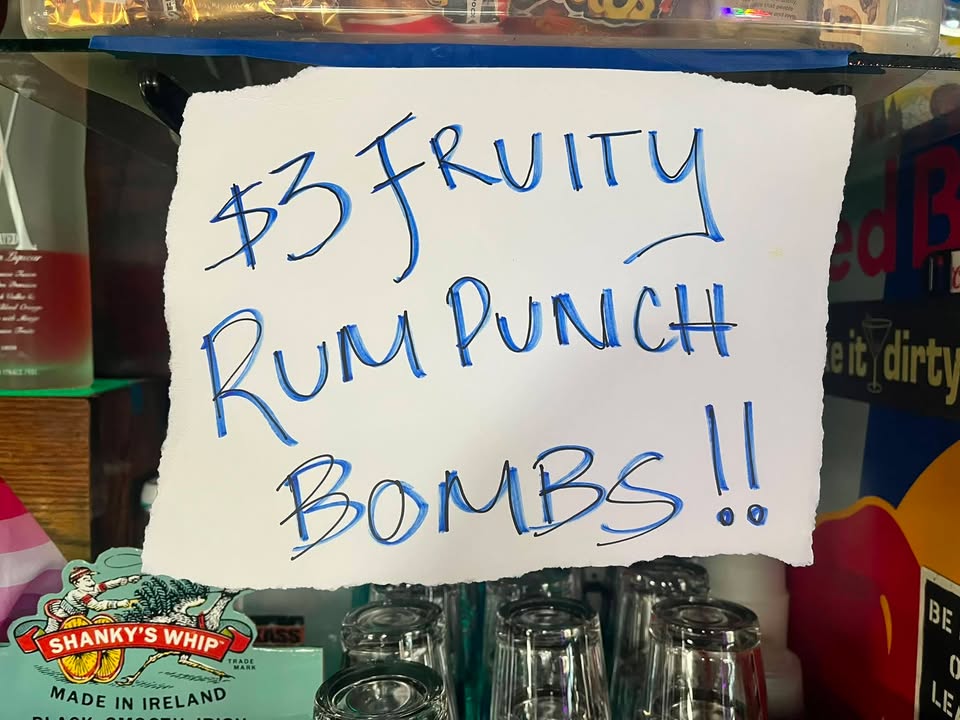 $3 FRUITY
RUM PUNCH
BOMBS!!
ed B
it dirty
SHANKY'S WHIP
TRADE
MARK
MADE IN IRELAND
BLACK SMOOTH IRISH
BE